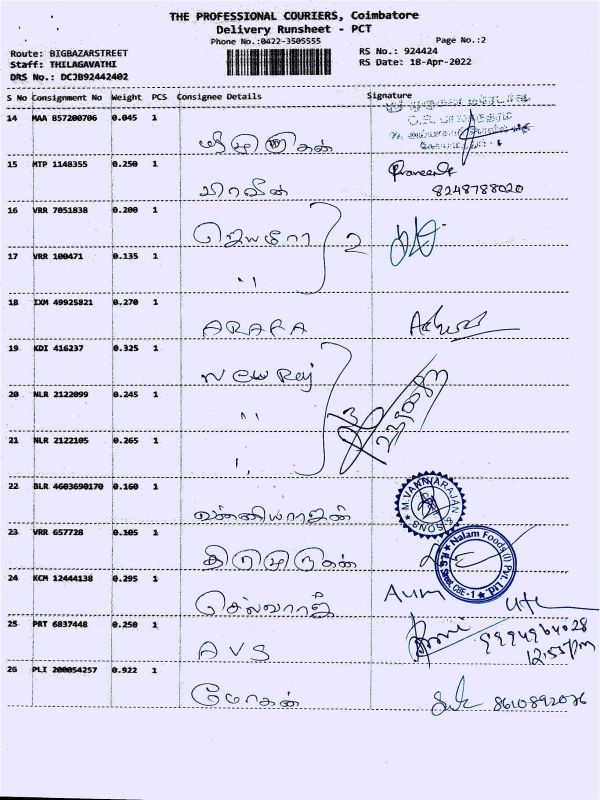 THE PROFESSIONAL COURIERS, Coimbatore
Delivery Runsheet - PCT
Phone No.:0422-3505555
Page No.:2
Route: BIGBAZARSTREET
RS No.: 924424
Staff: THILAGAVATHI
RS Date: 18-Apr-2022
DRS No.: DCJB92442402
S No Consignment No Weight PCS Consignee Details Signature
14 MAA 857200706 0.045 1
முருகன்
15 MTP 1148355 0.250 1
பிரவீன் Praveen
8248788020
16 VRR 7051838 0.200 1
2
17 VRR 100471 0.135 1
"
18 IXM 49925821 0.270 1
ARARA
19 KDI 416237 0.325 1
New Raj
20 NLR 2122099 0.245 1
"
21 NLR 2122105 0.265 1
"
22 BLR 4603690170 0.160 1
வன்னியராஜன் M.VANNIARAJAN & SONS
23 VRR 657728 0.105 1
திருமுருகன் Nalam Foods (I) Pvt. Ltd
CBE-1
24 KCM 12444138 0.295 1
செல்வராஜ்
25 PRT 6837448 0.250 1
AVS 9994964028
12:55pm
26 PLI 200054257 0.922 1
மோகன் 8610892076